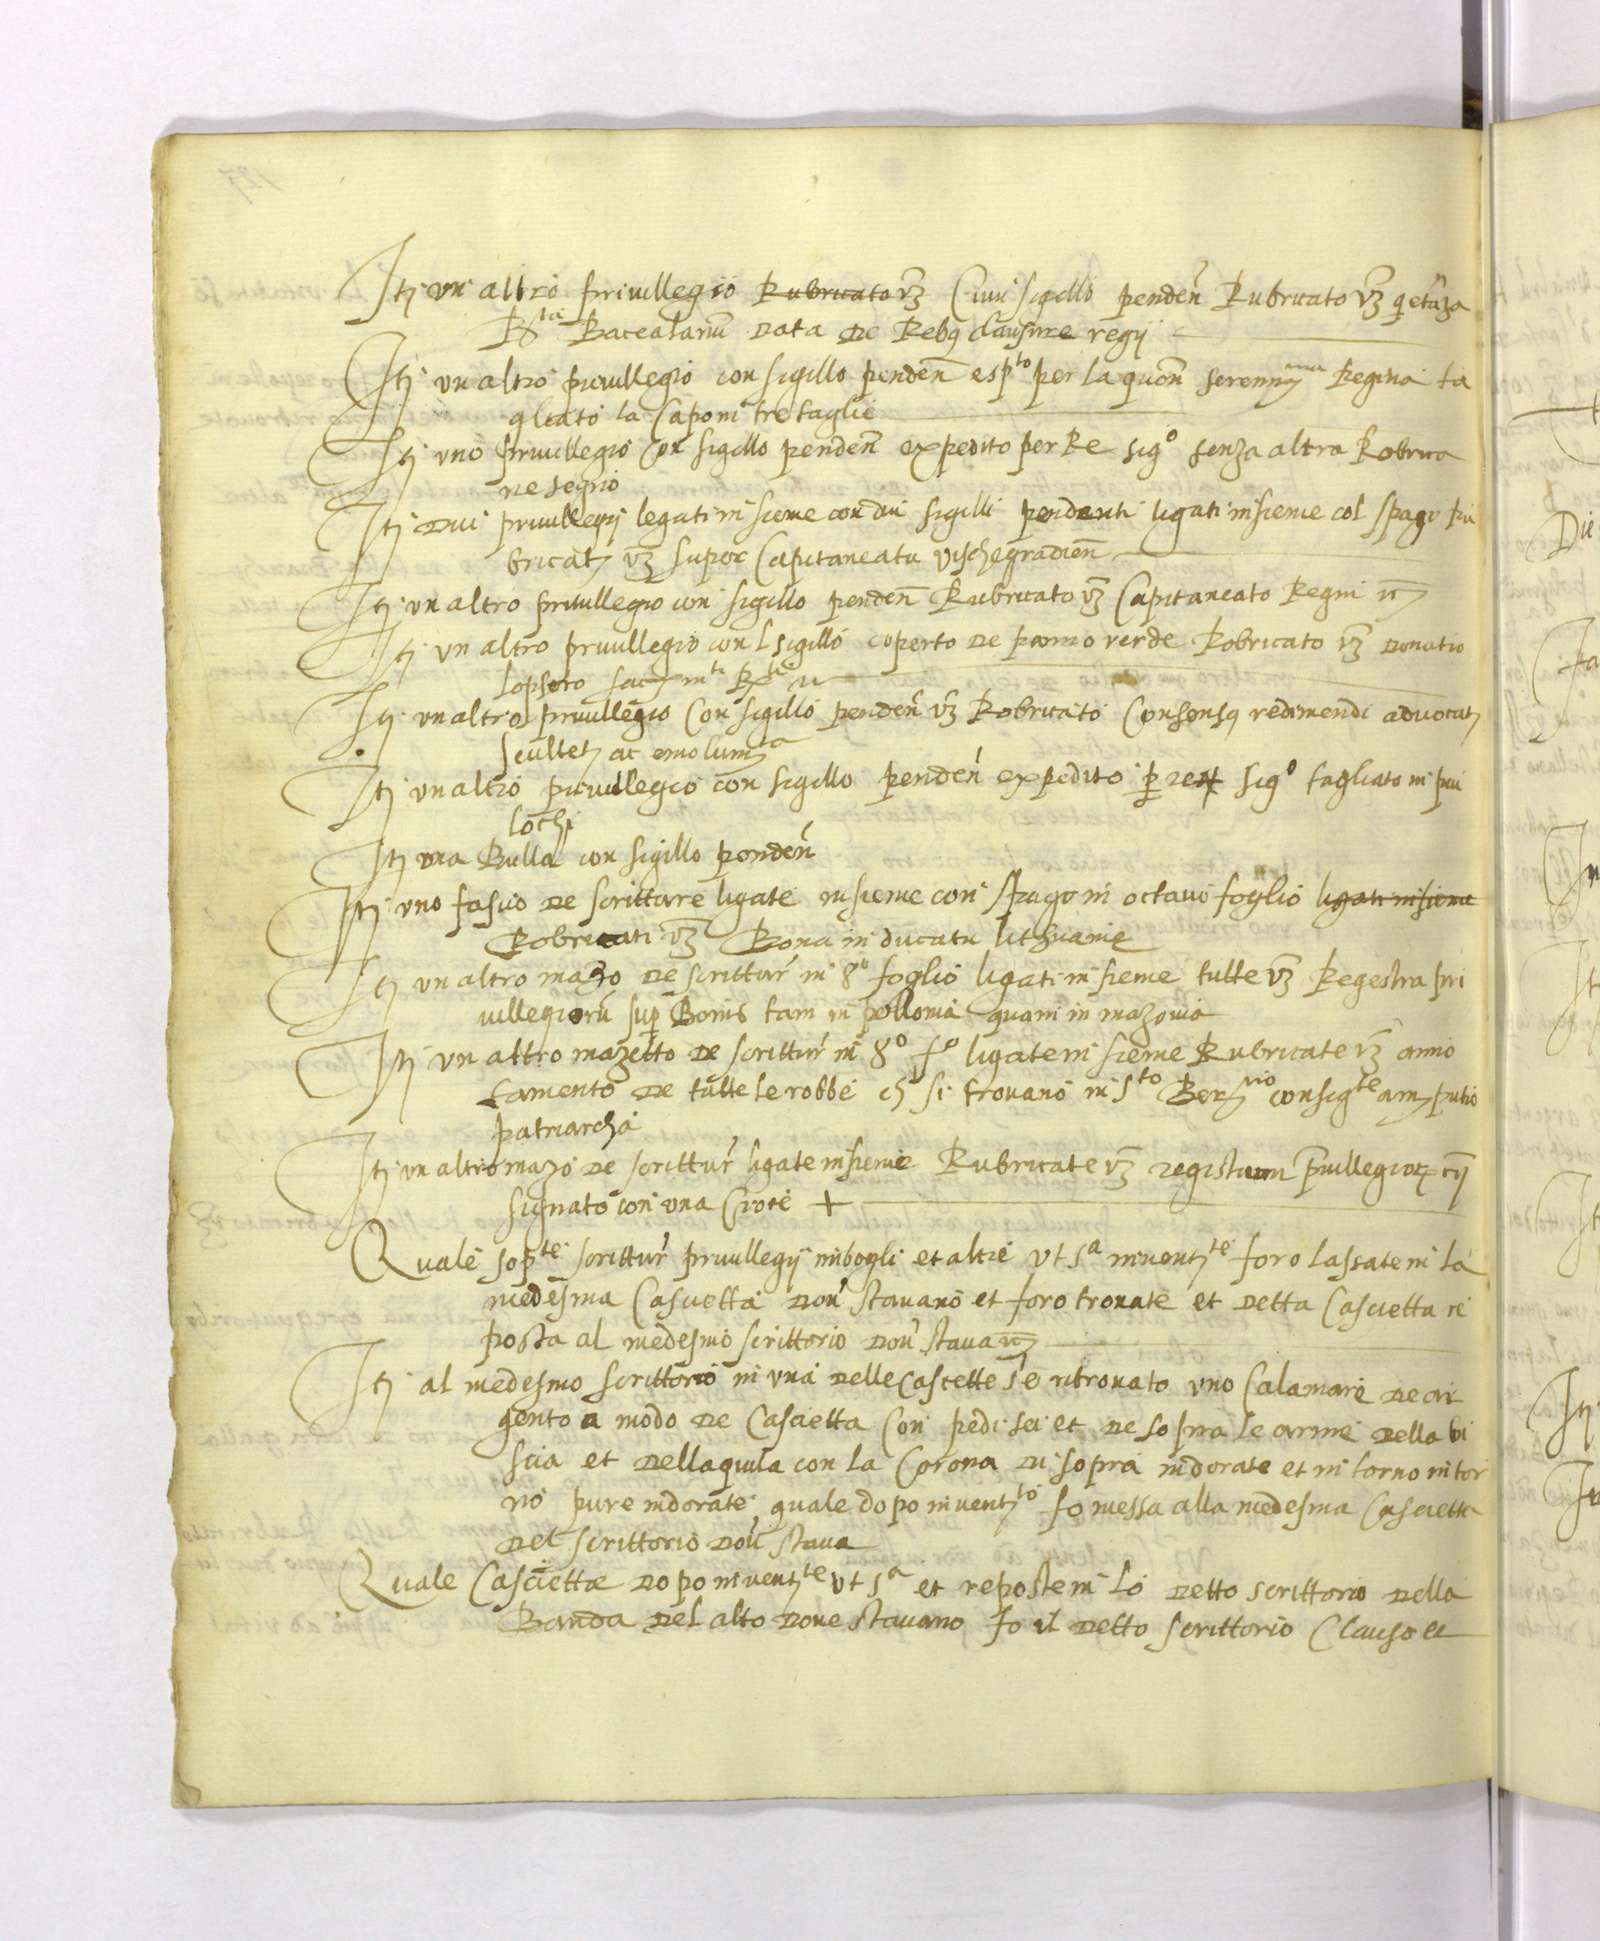 Itj un altro privillegio Rubricato vz Cum sigillo penden Rubricato vz
R.ta Bacealariu data de Rebq clausure regij
Itj un altro privillegio con sigillo penden esp.to per la quon serennj.ma Regina ta
gliato la Capom tre taglie
Itj uno privillegio con sigillo penden expedito per Re sig.o senza altra Robrica
ne segno
Itj dui privillegij legati insieme con dui sigilli pendenti ligati insieme col spago Ru
bricatj vz super Capitaneatu vischegradien
Itj un altro privillegio con sigillo penden Rubricato vz Capitaneato Regni
Itj un altro privillegio con l sigillo coperto de panno verde Robricato vz donatio
Itj un altro privillegio con sigillo penden vz Robricato Consensq redimendi advocatj
scultetj ac emolumta
Itj un altro privillegio con sigillo penden expedito p sig.o tagliato in piu
lochi
Itj una Bulla con sigillo penden
Itj uno fascio de scritture ligate insieme con spago in octavo foglio ligati insieme
Robricati vz Bona in ducatu lithuanie
Itj un altro mazo de scrittur in 8.o foglio ligati insieme tutte vz Regestra pri
villegioru sup Bonis tam in pollonia quam in mazovia
Itj un altro mazetto de scrittur in 8.o f.o ligate insieme Rubricate vz anno
tamento de tutte le robbe ch si trovano in S.to Ber.no consig.te
patriarcha
Itj un altro mazo de scrittur ligate insieme Rubricate vz registrum privillegior
signato con una Croce +
Quale sop.te scrittur privillegij imbogli et altre ut s.a inventj.te foro lassate in la
medesma Cascietta dov stavano et foro trovate et detta Cascietta re
posta al medesmo scrittorio dov stava
Itj al medesmo scrittorio in una delle cascette s'e ritrovato uno Calamare de ar
gento a modo de Cascietta Con pedi sei et de sopra le arme della bi
scia et dell aquila con la Corona di sopra indorate et in torno in tor
no pure indorate quale dopo inventj.to fo messa alla medesma Cascietta
del scrittorio dov stava
Quale Casciette dopo inventj.te ut s.a et reposte in lo detto scrittorio della
Banda del alto dove stavano fo il detto scrittorio Clauso et